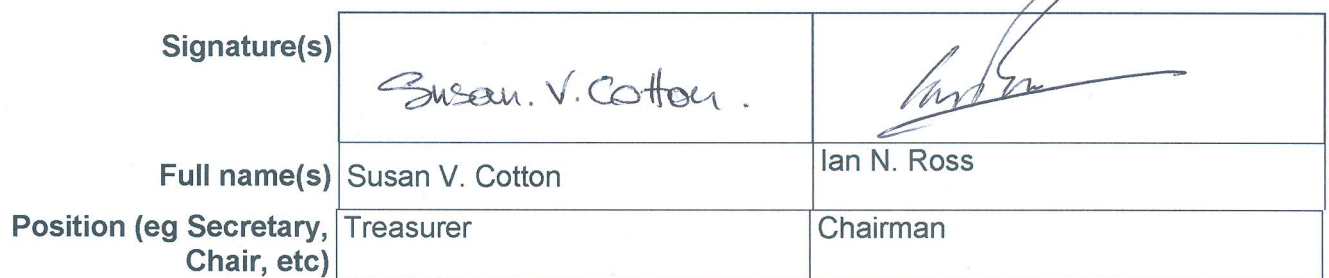 Signature(s)
Susan. V. Cotton.
Full name(s) Susan V. Cotton Ian N. Ross
Position (eg Secretary, Treasurer Chairman
Chair, etc)